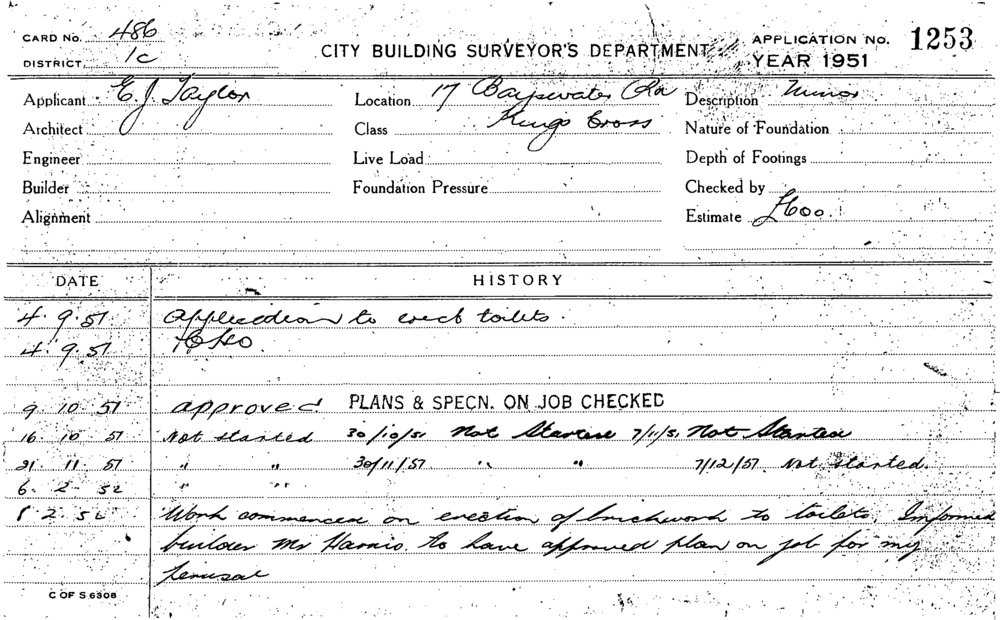 CARD No. 486
DISTRICT 1C
CITY BUILDING SURVEYOR'S DEPARTMENT
APPLICATION No. 1253
YEAR 1951
Applicant E. J. Taylor
Location 17 Bayswater Rd
Description Minor
Architect
Class Kings Cross
Nature of Foundation
Engineer
Live Load
Depth of Footings
Builder
Foundation Pressure
Checked by
Alignment
Estimate £600.
DATE HISTORY
4. 9. 51 Application to erect toilets.
4. 9. 51
9 10 51 approved PLANS & SPECN. ON JOB CHECKED
16 10 51 Not started 30/10/51 Not Started 7/11/51 Not Started
21. 11. 51 " " 30/11/51 " " 7/12/51 Not started.
6. 2. 52 " "
8 2 52 Work commenced on erection of brickwork to toilets. Informed
builder Mr Harris to have approved plan on job for my
perusal
C OF S 6308